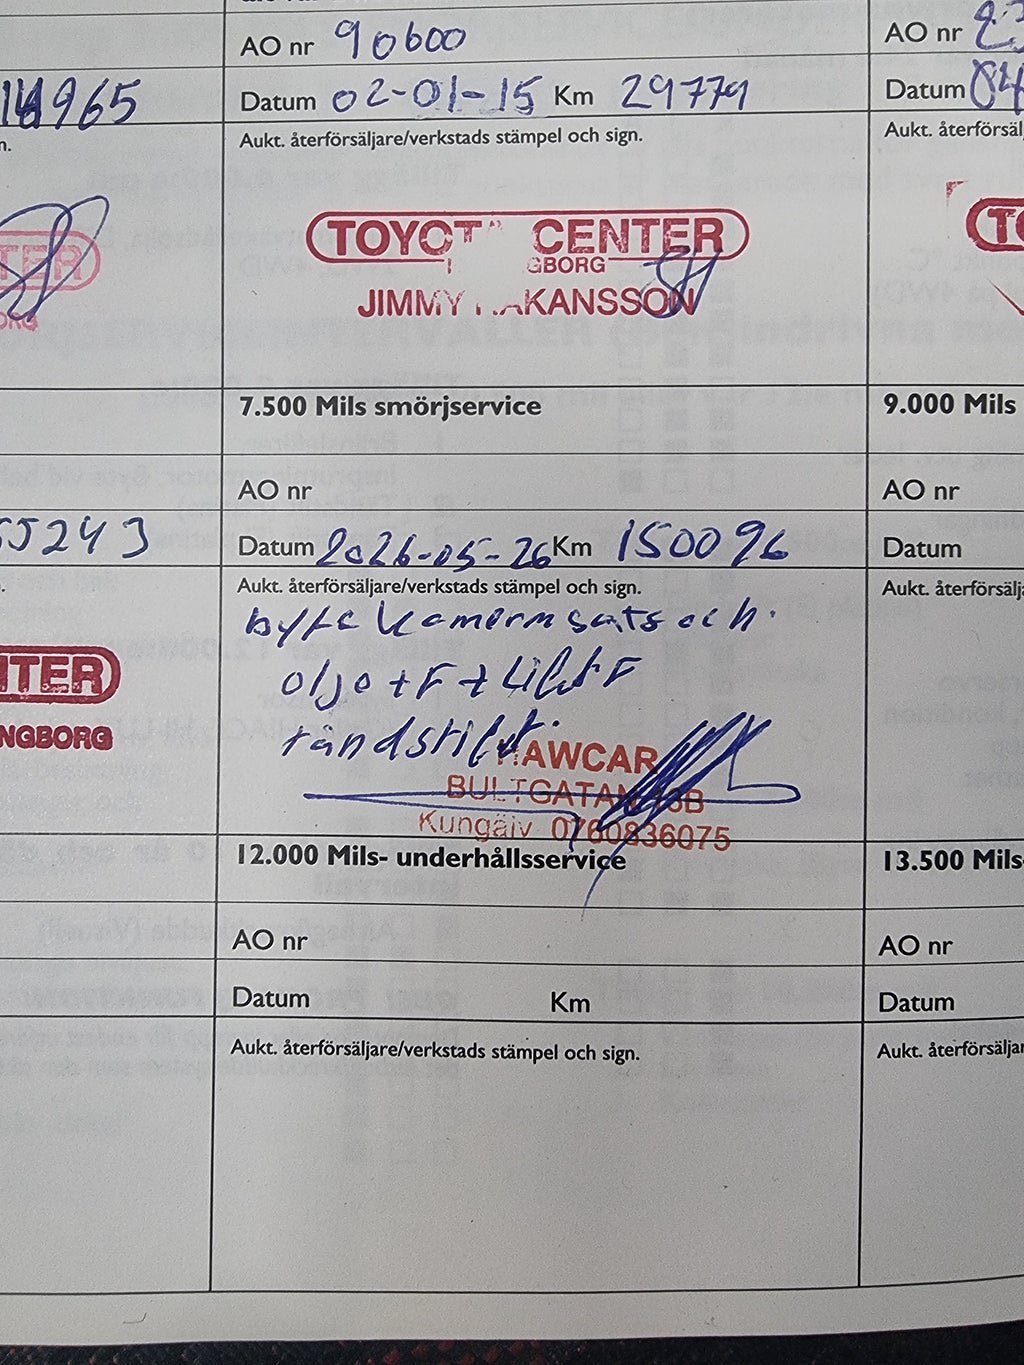 AO nr 90600
AO nr
14965
Datum 02-01-15 Km 29779
Datum 04
Aukt. återförsäljare/verkstads stämpel och sign.
Aukt. återförsäl
TOYOT CENTER
GBORG
JIMMY HAKANSSON
TER
ORG
TO
7.500 Mils smörjservice
9.000 Mils
AO nr
AO nr
55243
Datum 2026-05-26 Km 150096
Datum
Aukt. återförsäljare/verkstads stämpel och sign.
Aukt. återförsälja
byte kamremsats och
olja + F + Luft F
tändstift.
NTER
NGBORG
HAWCAR
BULTGATAN
Kungälv 0760836075
12.000 Mils- underhållsservice
13.500 Mils-
AO nr
AO nr
Datum Km
Datum
Aukt. återförsäljare/verkstads stämpel och sign.
Aukt. återförsäljar